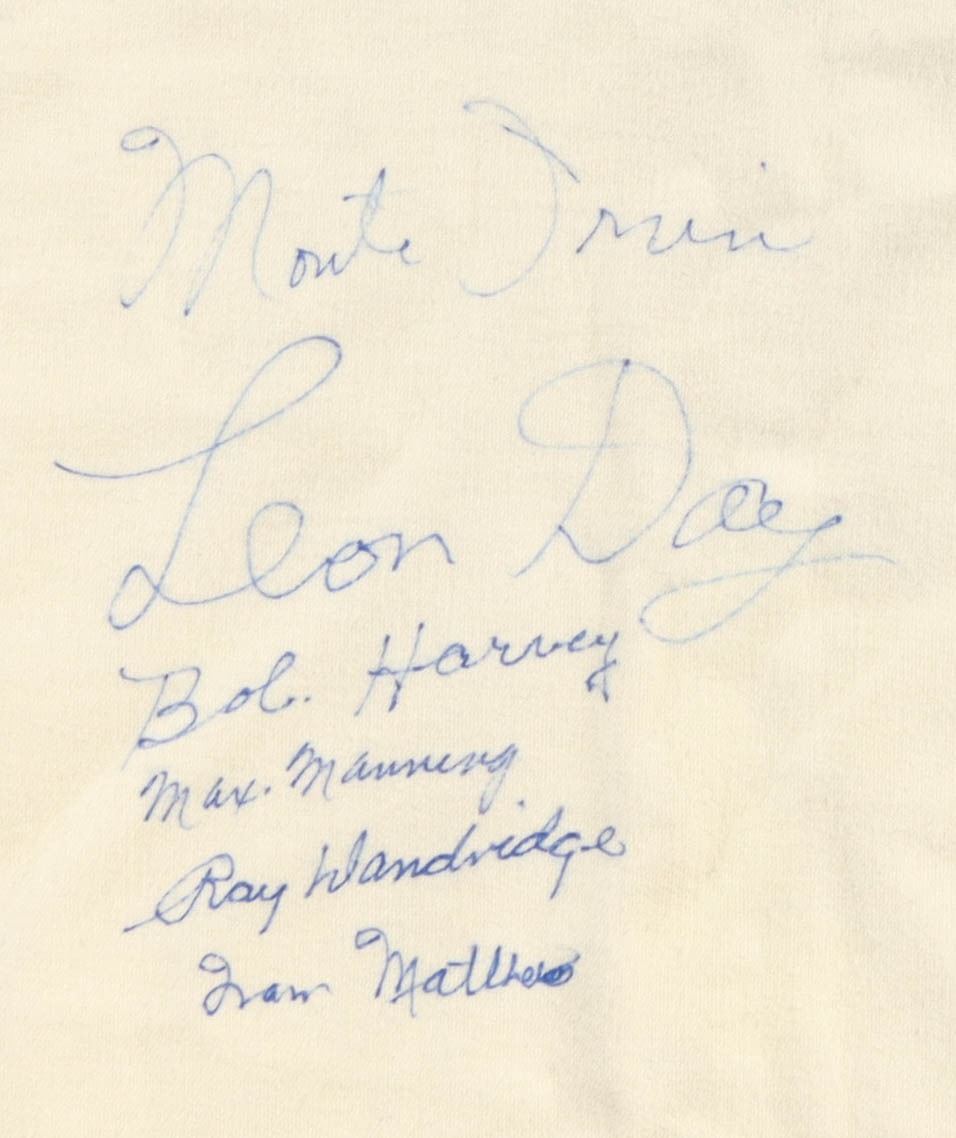 Monte Irvin
Leon Day
Bob. Harvey
Max. Manning
Ray Dandridge
Fran Matthews